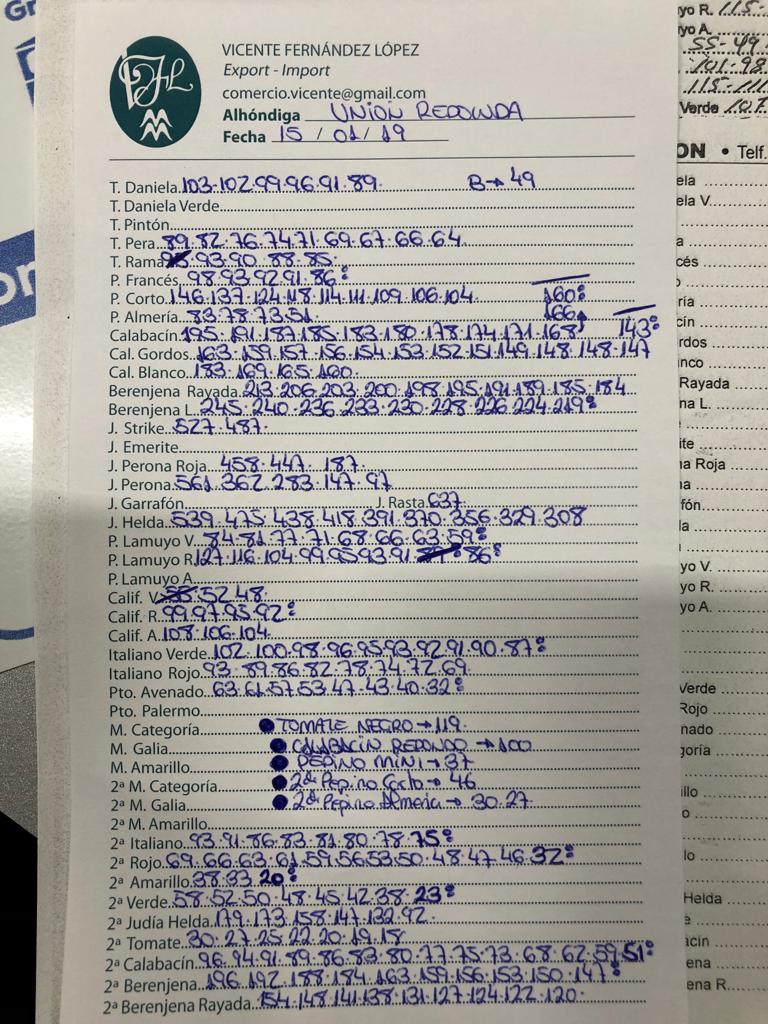 VICENTE FERNÁNDEZ LÓPEZ
Export - Import
comercio.vicente@gmail.com
Alhóndiga UNION REDONDA
Fecha 15 / 01 / 19
T. Daniela 103-102.99.96.91.89. B→49
T. Daniela Verde
T. Pintón
T. Pera 89.82.76.74.71.69.67.66.64
T. Rama 93.90.88.85.
P. Francés 98.93.92.91.86
P. Corto 146.137.124.118.114.111.109.106.104 160
P. Almería 83.78.73.51 166
Calabacín 195.191.187.185.183.180.178.174.171.168 143
Cal. Gordos 163.159.157.156.154.153.152.151.149.148.148.147
Cal. Blanco 183.169.165.160
Berenjena Rayada 213.206.203.200.198.195.191.189.185.184
Berenjena L. 245.240.236.233.230.228.226.224.219
J. Strike 527.487.
J. Emerite
J. Perona Roja 458.447.187
J. Perona 561.362.283.147.97
J. Garrafón J. Rasta 637
J. Helda 539.475.438.418.391.370.356.329.308
P. Lamuyo V. 84.81.77.71.68.66.63.59
P. Lamuyo R. 127.116.104.99.95.93.91 86
P. Lamuyo A
Calif. V. 52.48
Calif. R. 99.97.95.92
Calif. A. 108.106.104
Italiano Verde 102.100.98.96.95.93.92.91.90.87
Italiano Rojo 93.89.86.82.78.74.72.69
Pto. Avenado 63.61.57.53.47.43.40.32
Pto. Palermo
M. Categoría TOMATE NEGRO→119
M. Galia CALABACIN REDONDO→100
M. Amarillo PEPINO MINI→37
2ª M. Categoría 2ª Pepino Corto→46
2ª M. Galia 2ª Pepino Almeria→30.27
2ª M. Amarillo
2ª Italiano 93.91.86.83.81.80.78.75
2ª Rojo 69.66.63.61.59.56.53.50.48.47.46.32
2ª Amarillo 38.33.20
2ª Verde 58.52.50.48.45.42.38.23
2ª Judía Helda 179.173.158.147.132.92
2ª Tomate 30.27.25.22.20.19.18
2ª Calabacín 96.94.91.89.86.83.80.77.75.73.68.62.59.51
2ª Berenjena 196.192.188.184.163.159.156.153.150.147
2ª Berenjena Rayada 154.148.141.138.131.127.124.122.120
yo R. 115-
yo A.
55-49
101-98
115-111
Verde 107
ON • Telf.
ela
ela V.
a
cés
ría
cín
rdos
nco
Rayada
na L.
ite
a Roja
na
fón
da
yo V.
yo R.
yo A.
Verde
Rojo
nado
goría
illo
o
lo
Helda
e
acín
ena
ena R.